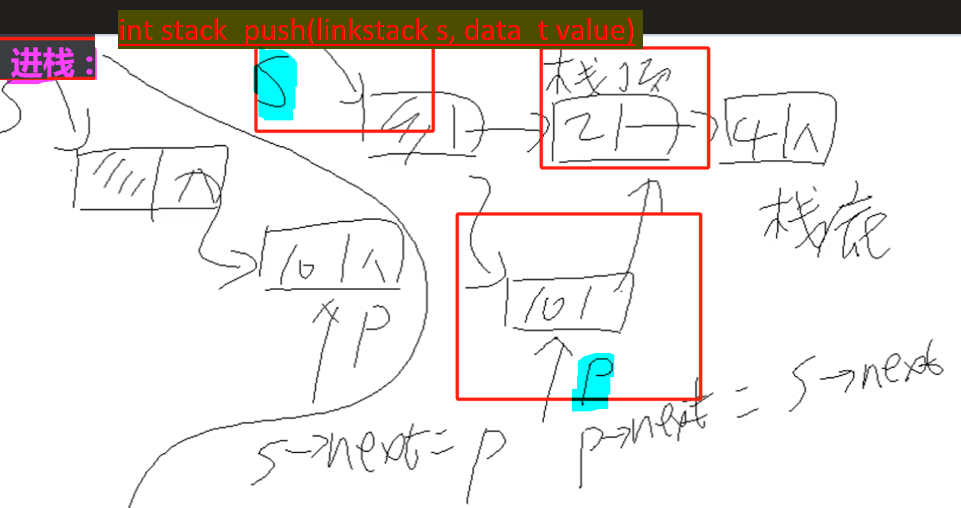 int stack_push(linkstack s, data_t value)
进栈：
S
栈顶
2
4 ∧
栈底
10 ∧
p
10
p
s→next = p
p→next = s→next